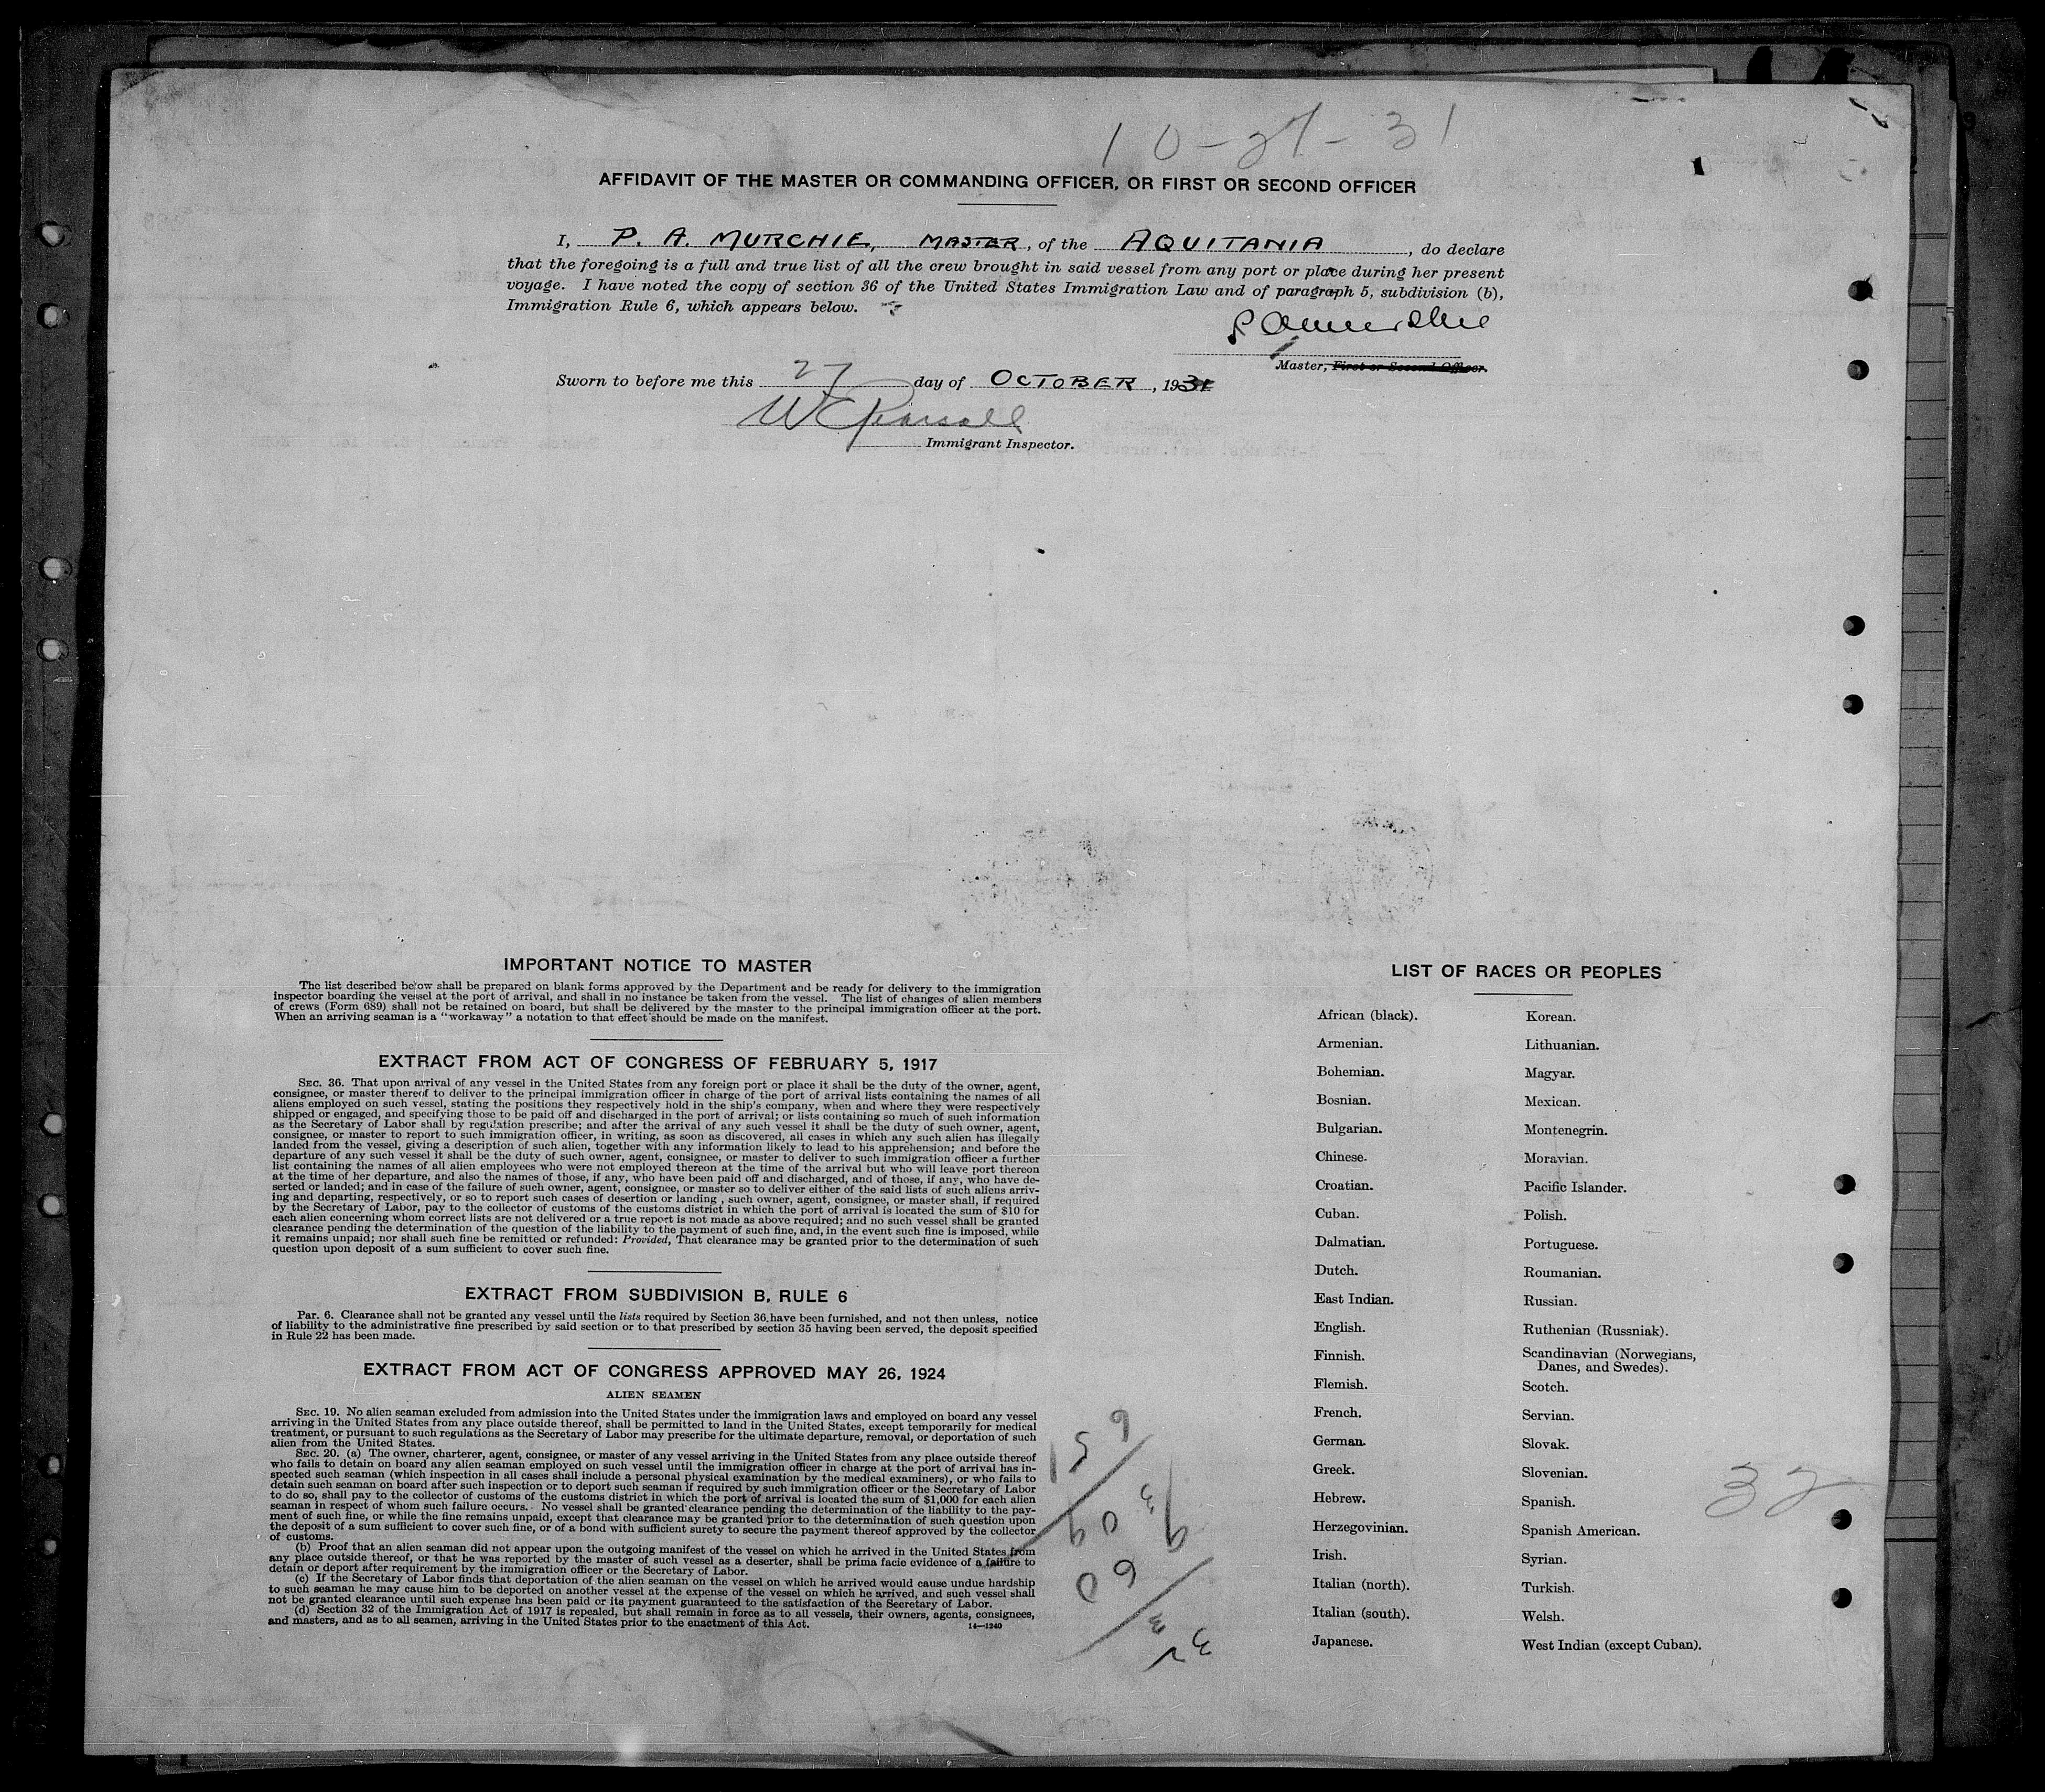 10-27-31
AFFIDAVIT OF THE MASTER OR COMMANDING OFFICER, OR FIRST OR SECOND OFFICER
I, P. A. MURCHIE, MASTER, of the AQUITANIA, do declare
that the foregoing is a full and true list of all the crew brought in said vessel from any port or place during her present
voyage. I have noted the copy of section 36 of the United States Immigration Law and of paragraph 5, subdivision (b),
Immigration Rule 6, which appears below.
P A Murchie
Master, First or Second Officer.
Sworn to before me this 27 day of OCTOBER, 1931
Immigrant Inspector.
IMPORTANT NOTICE TO MASTER
The list described below shall be prepared on blank forms approved by the Department and be ready for delivery to the immigration
inspector boarding the vessel at the port of arrival, and shall in no instance be taken from the vessel. The list of changes of alien members
of crews (Form 689) shall not be retained on board, but shall be delivered by the master to the principal immigration officer at the port.
When an arriving seaman is a "workaway" a notation to that effect should be made on the manifest.
EXTRACT FROM ACT OF CONGRESS OF FEBRUARY 5, 1917
SEC. 36. That upon arrival of any vessel in the United States from any foreign port or place it shall be the duty of the owner, agent,
consignee, or master thereof to deliver to the principal immigration officer in charge of the port of arrival lists containing the names of all
aliens employed on such vessel, stating the positions they respectively hold in the ship's company, when and where they were respectively
shipped or engaged, and specifying those to be paid off and discharged in the port of arrival; or lists containing so much of such information
as the Secretary of Labor shall by regulation prescribe; and after the arrival of any such vessel it shall be the duty of such owner, agent,
consignee, or master to report to such immigration officer, in writing, as soon as discovered, all cases in which any such alien has illegally
landed from the vessel, giving a description of such alien, together with any information likely to lead to his apprehension; and before the
departure of any such vessel it shall be the duty of such owner, agent, consignee, or master to deliver to such immigration officer a further
list containing the names of all alien employees who were not employed thereon at the time of the arrival but who will leave port thereon
at the time of her departure, and also the names of those, if any, who have been paid off and discharged, and of those, if any, who have de-
serted or landed; and in case of the failure of such owner, agent, consignee, or master so to deliver either of the said lists of such aliens arriv-
ing and departing, respectively, or so to report such cases of desertion or landing , such owner, agent, consignee, or master shall, if required
by the Secretary of Labor, pay to the collector of customs of the customs district in which the port of arrival is located the sum of $10 for
each alien concerning whom correct lists are not delivered or a true report is not made as above required; and no such vessel shall be granted
clearance pending the determination of the question of the liability to the payment of such fine, and, in the event such fine is imposed, while
it remains unpaid; nor shall such fine be remitted or refunded: Provided, That clearance may be granted prior to the determination of such
question upon deposit of a sum sufficient to cover such fine.
EXTRACT FROM SUBDIVISION B, RULE 6
Par. 6. Clearance shall not be granted any vessel until the lists required by Section 36 have been furnished, and not then unless, notice
of liability to the administrative fine prescribed by said section or to that prescribed by section 35 having been served, the deposit specified
in Rule 22 has been made.
EXTRACT FROM ACT OF CONGRESS APPROVED MAY 26, 1924
ALIEN SEAMEN
SEC. 19. No alien seaman excluded from admission into the United States under the immigration laws and employed on board any vessel
arriving in the United States from any place outside thereof, shall be permitted to land in the United States, except temporarily for medical
treatment, or pursuant to such regulations as the Secretary of Labor may prescribe for the ultimate departure, removal, or deportation of such
alien from the United States.
SEC. 20. (a) The owner, charterer, agent, consignee, or master of any vessel arriving in the United States from any place outside thereof
who fails to detain on board any alien seaman employed on such vessel until the immigration officer in charge at the port of arrival has in-
spected such seaman (which inspection in all cases shall include a personal physical examination by the medical examiners), or who fails to
detain such seaman on board after such inspection or to deport such seaman if required by such immigration officer or the Secretary of Labor
to do so, shall pay to the collector of customs of the customs district in which the port of arrival is located the sum of $1,000 for each alien
seaman in respect of whom such failure occurs. No vessel shall be granted clearance pending the determination of the liability to the pay-
ment of such fine, or while the fine remains unpaid, except that clearance may be granted prior to the determination of such question upon
the deposit of a sum sufficient to cover such fine, or of a bond with sufficient surety to secure the payment thereof approved by the collector
of customs.
(b) Proof that an alien seaman did not appear upon the outgoing manifest of the vessel on which he arrived in the United States from
any place outside thereof, or that he was reported by the master of such vessel as a deserter, shall be prima facie evidence of a failure to
detain or deport after requirement by the immigration officer or the Secretary of Labor.
(c) If the Secretary of Labor finds that deportation of the alien seaman on the vessel on which he arrived would cause undue hardship
to such seaman he may cause him to be deported on another vessel at the expense of the vessel on which he arrived, and such vessel shall
not be granted clearance until such expense has been paid or its payment guaranteed to the satisfaction of the Secretary of Labor.
(d) Section 32 of the Immigration Act of 1917 is repealed, but shall remain in force as to all vessels, their owners, agents, consignees,
and masters, and as to all seamen, arriving in the United States prior to the enactment of this Act.
14—1240
LIST OF RACES OR PEOPLES
African (black).
Armenian.
Bohemian.
Bosnian.
Bulgarian.
Chinese.
Croatian.
Cuban.
Dalmatian.
Dutch.
East Indian.
English.
Finnish.
Flemish.
French.
German.
Greek.
Hebrew.
Herzegovinian.
Irish.
Italian (north).
Italian (south).
Japanese.
Korean.
Lithuanian.
Magyar.
Mexican.
Montenegrin.
Moravian.
Pacific Islander.
Polish.
Portuguese.
Roumanian.
Russian.
Ruthenian (Russniak).
Scandinavian (Norwegians,
Danes, and Swedes).
Scotch.
Servian.
Slovak.
Slovenian.
Spanish.
Spanish American.
Syrian.
Turkish.
Welsh.
West Indian (except Cuban).
32